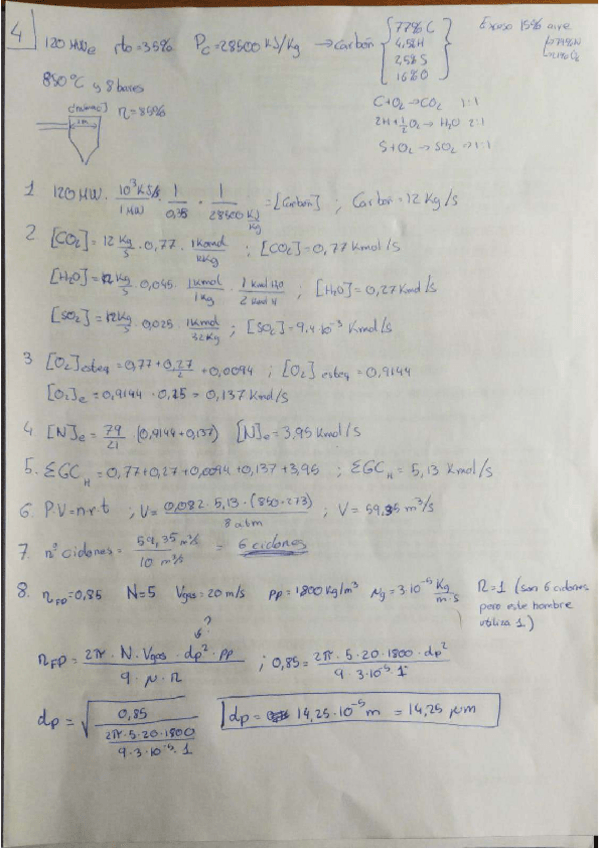 4
120 MWe rto=35% Pc=28500 KJ/Kg → carbón { 77% C Exceso 15% aire
4,5% H
2,5% S
16% O
850°C y 8 bares
η=85%
C+O₂→CO₂ 1:1
2H+½O₂→ H₂O 2:1
S+O₂→SO₂ → 1:1
1 120 MW · 10³KJ/s / 1 MW · 1/0,35 · 1/28500 KJ/Kg = [Carbón] ; Carbón = 12 Kg/s
2 [CO₂] = 12 Kg/s · 0,77 · 1Kmol/12Kg ; [CO₂] = 0,77 Kmol/s
[H₂O] = 12 Kg/s · 0,045 · 1Kmol/1Kg · 1 Kmol H₂O / 2 Kmol H ; [H₂O] = 0,27 Kmol/s
[SO₂] = 12 Kg/s · 0,025 · 1Kmol/32Kg ; [SO₂] = 9,4·10⁻³ Kmol/s
3 [O₂]esteq = 0,77 + 0,27/2 + 0,0094 ; [O₂]esteq = 0,9144
[O₂]e = 0,9144 · 0,15 = 0,137 Kmol/s
4. [N]e = 79/21 · (0,9144+0,137) [N]e = 3,95 Kmol/s
5. ΣGC_H = 0,77+0,27+0,0094+0,137+3,95 ; ΣGC_H = 5,13 Kmol/s
6. P·V=n·r·t ; V = 0,082 · 5,13 · (850+273) / 8 atm ; V = 59,35 m³/s
7. nº ciclones = 59,35 m³/s / 10 m³/s = 6 ciclones
8. η_FD=0,85 N=5 Vgas=20 m/s ρp=1800 Kg/m³ μg=3·10⁻⁵ Kg/m·s R=1 (son 6 ciclones
pero este hombre
utiliza 1.)
?
η_FD = 2π · N · Vgas · dp² · ρp / 9 · μ · R ; 0,85 = 2π · 5 · 20 · 1800 · dp² / 9 · 3·10⁻⁵ · 1
dp = √ 0,85 / (2π · 5 · 20 · 1800 / 9 · 3 · 10⁻⁵ · 1) dp = 14,25·10⁻⁶ m = 14,25 μm